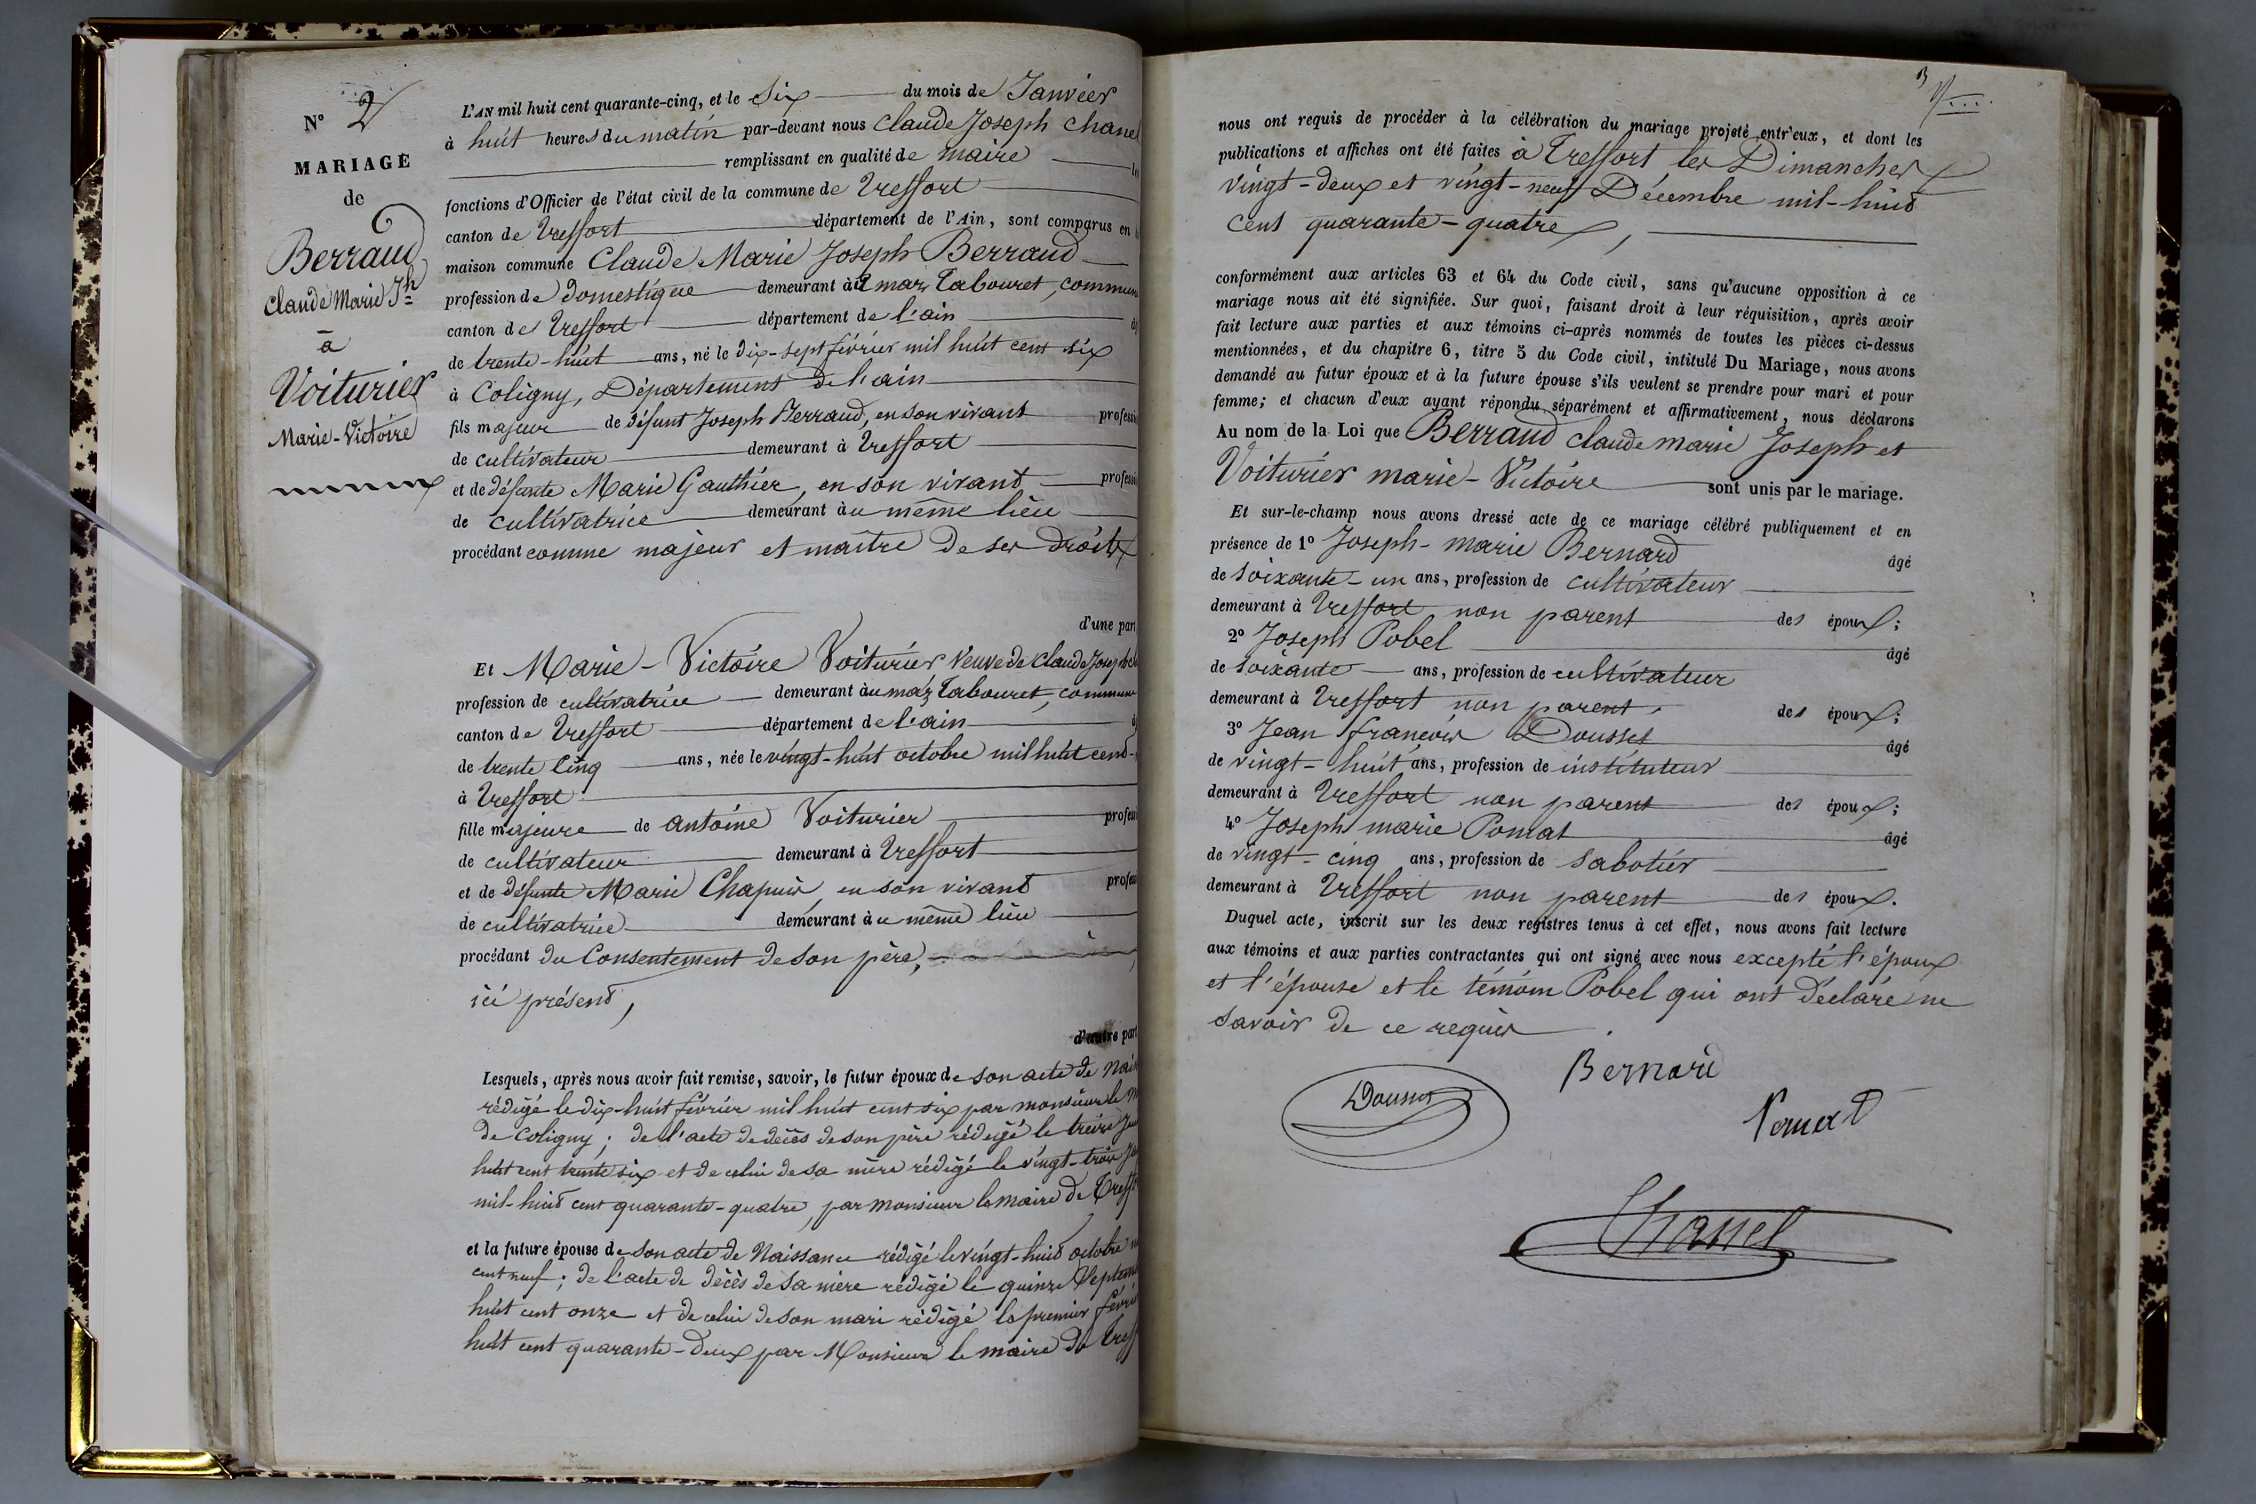 N° 2
MARIAGE
de
Berraud
Claude Marie Jh
à
Voiturier
Marie-Victoire
L'AN mil huit cent quarante-cinq, et le Six du mois de Janvier
à huit heures du matin par-devant nous Claude Joseph Chanel
remplissant en qualité de maire
fonctions d'Officier de l'état civil de la commune de Treffort
canton de Treffort département de l'Ain, sont comparus en
maison commune Claude Marie Joseph Berraud
profession de Domestique demeurant à mas Tabouret, commune
canton de Treffort département de l'ain
de trente-huit ans, né le dix-sept février mil huit cent six
à Coligny, Département de l'ain
fils majeur de défunt Joseph Berraud, en son vivant
de cultivateur demeurant à Treffort
et de défunte Marie Gauthier, en son vivant
de cultivatrice demeurant au même lieu
procédant comme majeur et maître de ses droits
d'une part
Et Marie-Victoire Voiturier Veuve de Claude Joseph
profession de cultivatrice demeurant au mas Tabouret, commune
canton de Treffort département de l'ain
de trente cinq ans, née le vingt-huit octobre mil huit cent
à Treffort
fille majeure de antoine Voiturier
de cultivateur demeurant à Treffort
et de défunte Marie Chapuis, en son vivant
de cultivatrice demeurant au même lieu
procédant du Consentement de son père,
ici présent,
d'autre part
Lesquels, après nous avoir fait remise, savoir, le futur époux de son acte de
rédigé le dix-huit février mil huit cent six par monsieur le
de Coligny; de l'acte de décès de son père rédigé le treize
huit cent trente six et de celui de sa mère rédigé le vingt-trois
mil-huit cent quarante-quatre, par monsieur le maire de
et la future épouse de son acte de Naissance rédigé le vingt-huit octobre
cent neuf; de l'acte de décès de sa mère rédigé le quinze
huit cent onze et de celui de son mari rédigé le premier
huit cent quarante-deux par Monsieur le maire de
3
nous ont requis de procéder à la célébration du mariage projeté entr'eux, et dont les
publications et affiches ont été faites à Treffort les Dimanches
vingt-deux et vingt-neuf Décembre mil-huit
cent quarante-quatre,
conformément aux articles 63 et 64 du Code civil, sans qu'aucune opposition à ce
mariage nous ait été signifiée. Sur quoi, faisant droit à leur réquisition, après avoir
fait lecture aux parties et aux témoins ci-après nommés de toutes les pièces ci-dessus
mentionnées, et du chapitre 6, titre 5 du Code civil, intitulé Du Mariage, nous avons
demandé au futur époux et à la future épouse s'ils veulent se prendre pour mari et pour
femme; et chacun d'eux ayant répondu séparément et affirmativement, nous déclarons
Au nom de la Loi que Berraud claude marie Joseph et
Voiturier marie-Victoire sont unis par le mariage.
Et sur-le-champ nous avons dressé acte de ce mariage célébré publiquement et en
présence de 1° Joseph-marie Bernard âgé
de soixante-un ans, profession de cultivateur
demeurant à Treffort non parent des époux;
2° Joseph Pobel âgé
de soixante ans, profession de cultivateur
demeurant à Treffort non parent, des époux;
3° Jean François Dousset âgé
de vingt-huit ans, profession de instituteur
demeurant à Treffort non parent des époux;
4° Joseph marie Pomat âgé
de vingt-cinq ans, profession de sabotier
demeurant à Treffort non parent des époux.
Duquel acte, inscrit sur les deux registres tenus à cet effet, nous avons fait lecture
aux témoins et aux parties contractantes qui ont signé avec nous excepté l'époux
et l'épouse et le témoin Pobel qui ont déclaré ne
savoir de ce requis.
Bernard
Chanel